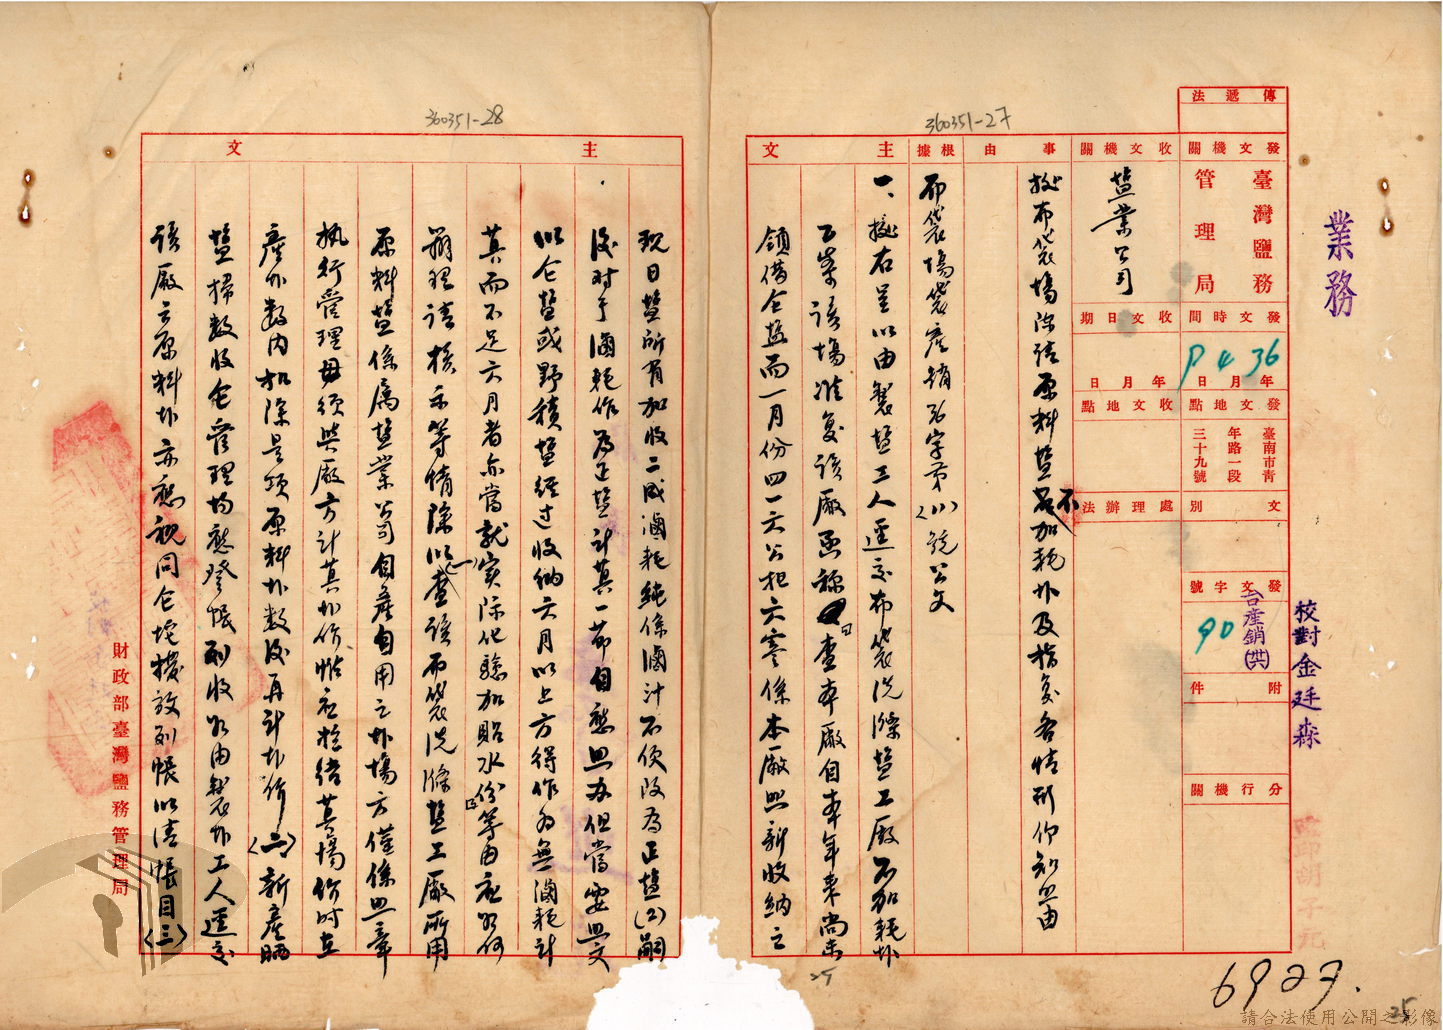 業務
校對金廷森
傳遞法
發文機關
臺灣鹽務管理局
收文機關
鹽業公司
發文時間
36年4月P日
收文日期
年月日
發文地點
臺南市青年路一段三十九號
收文地點
文別
處理辦法
發文字號
台產銷(其)
90
附件
分行機關
事由
據布袋場深請原料鹽不加耗外及指各情形仰知照由
根據
布袋場袋產銷字第八號公文
主文
一、據右呈以由製鹽工人逕交布袋洗滌鹽工廠不加耗外
乙案該場准复該廠函称查本廠自本年來尚未
領借仓鹽而一月份四一六公担六零係本廠照新收納之
主文
現日鹽所有加收二成滷耗純係滷汁不便改為正鹽(2)嗣
後对于滷耗作為正鹽計其一節自應照办但當要照文
以仓鹽或野積鹽經过收納六月以上方得作為無滷耗計
其而不足六月者亦當就实際化驗加貼水份等由应如何
辦理請核示等情除以查該布袋洗滌鹽工廠所用
原料鹽係属鹽業公司自產自用之外場方僅係照章
执行管理毋須与廠方計其外价帐在檢結其場价时在
產外数内扣除是項原料外数後再計外价(二)新產晒
鹽掃数收仓管理均應登帐列收如由製外工人逕交
該廠之原料外亦應視同仓坨撥放列帳以清帳目(三)
財政部臺灣鹽務管理局
360351-27
360351-28
25
6923.
25
請合法使用公開之影像